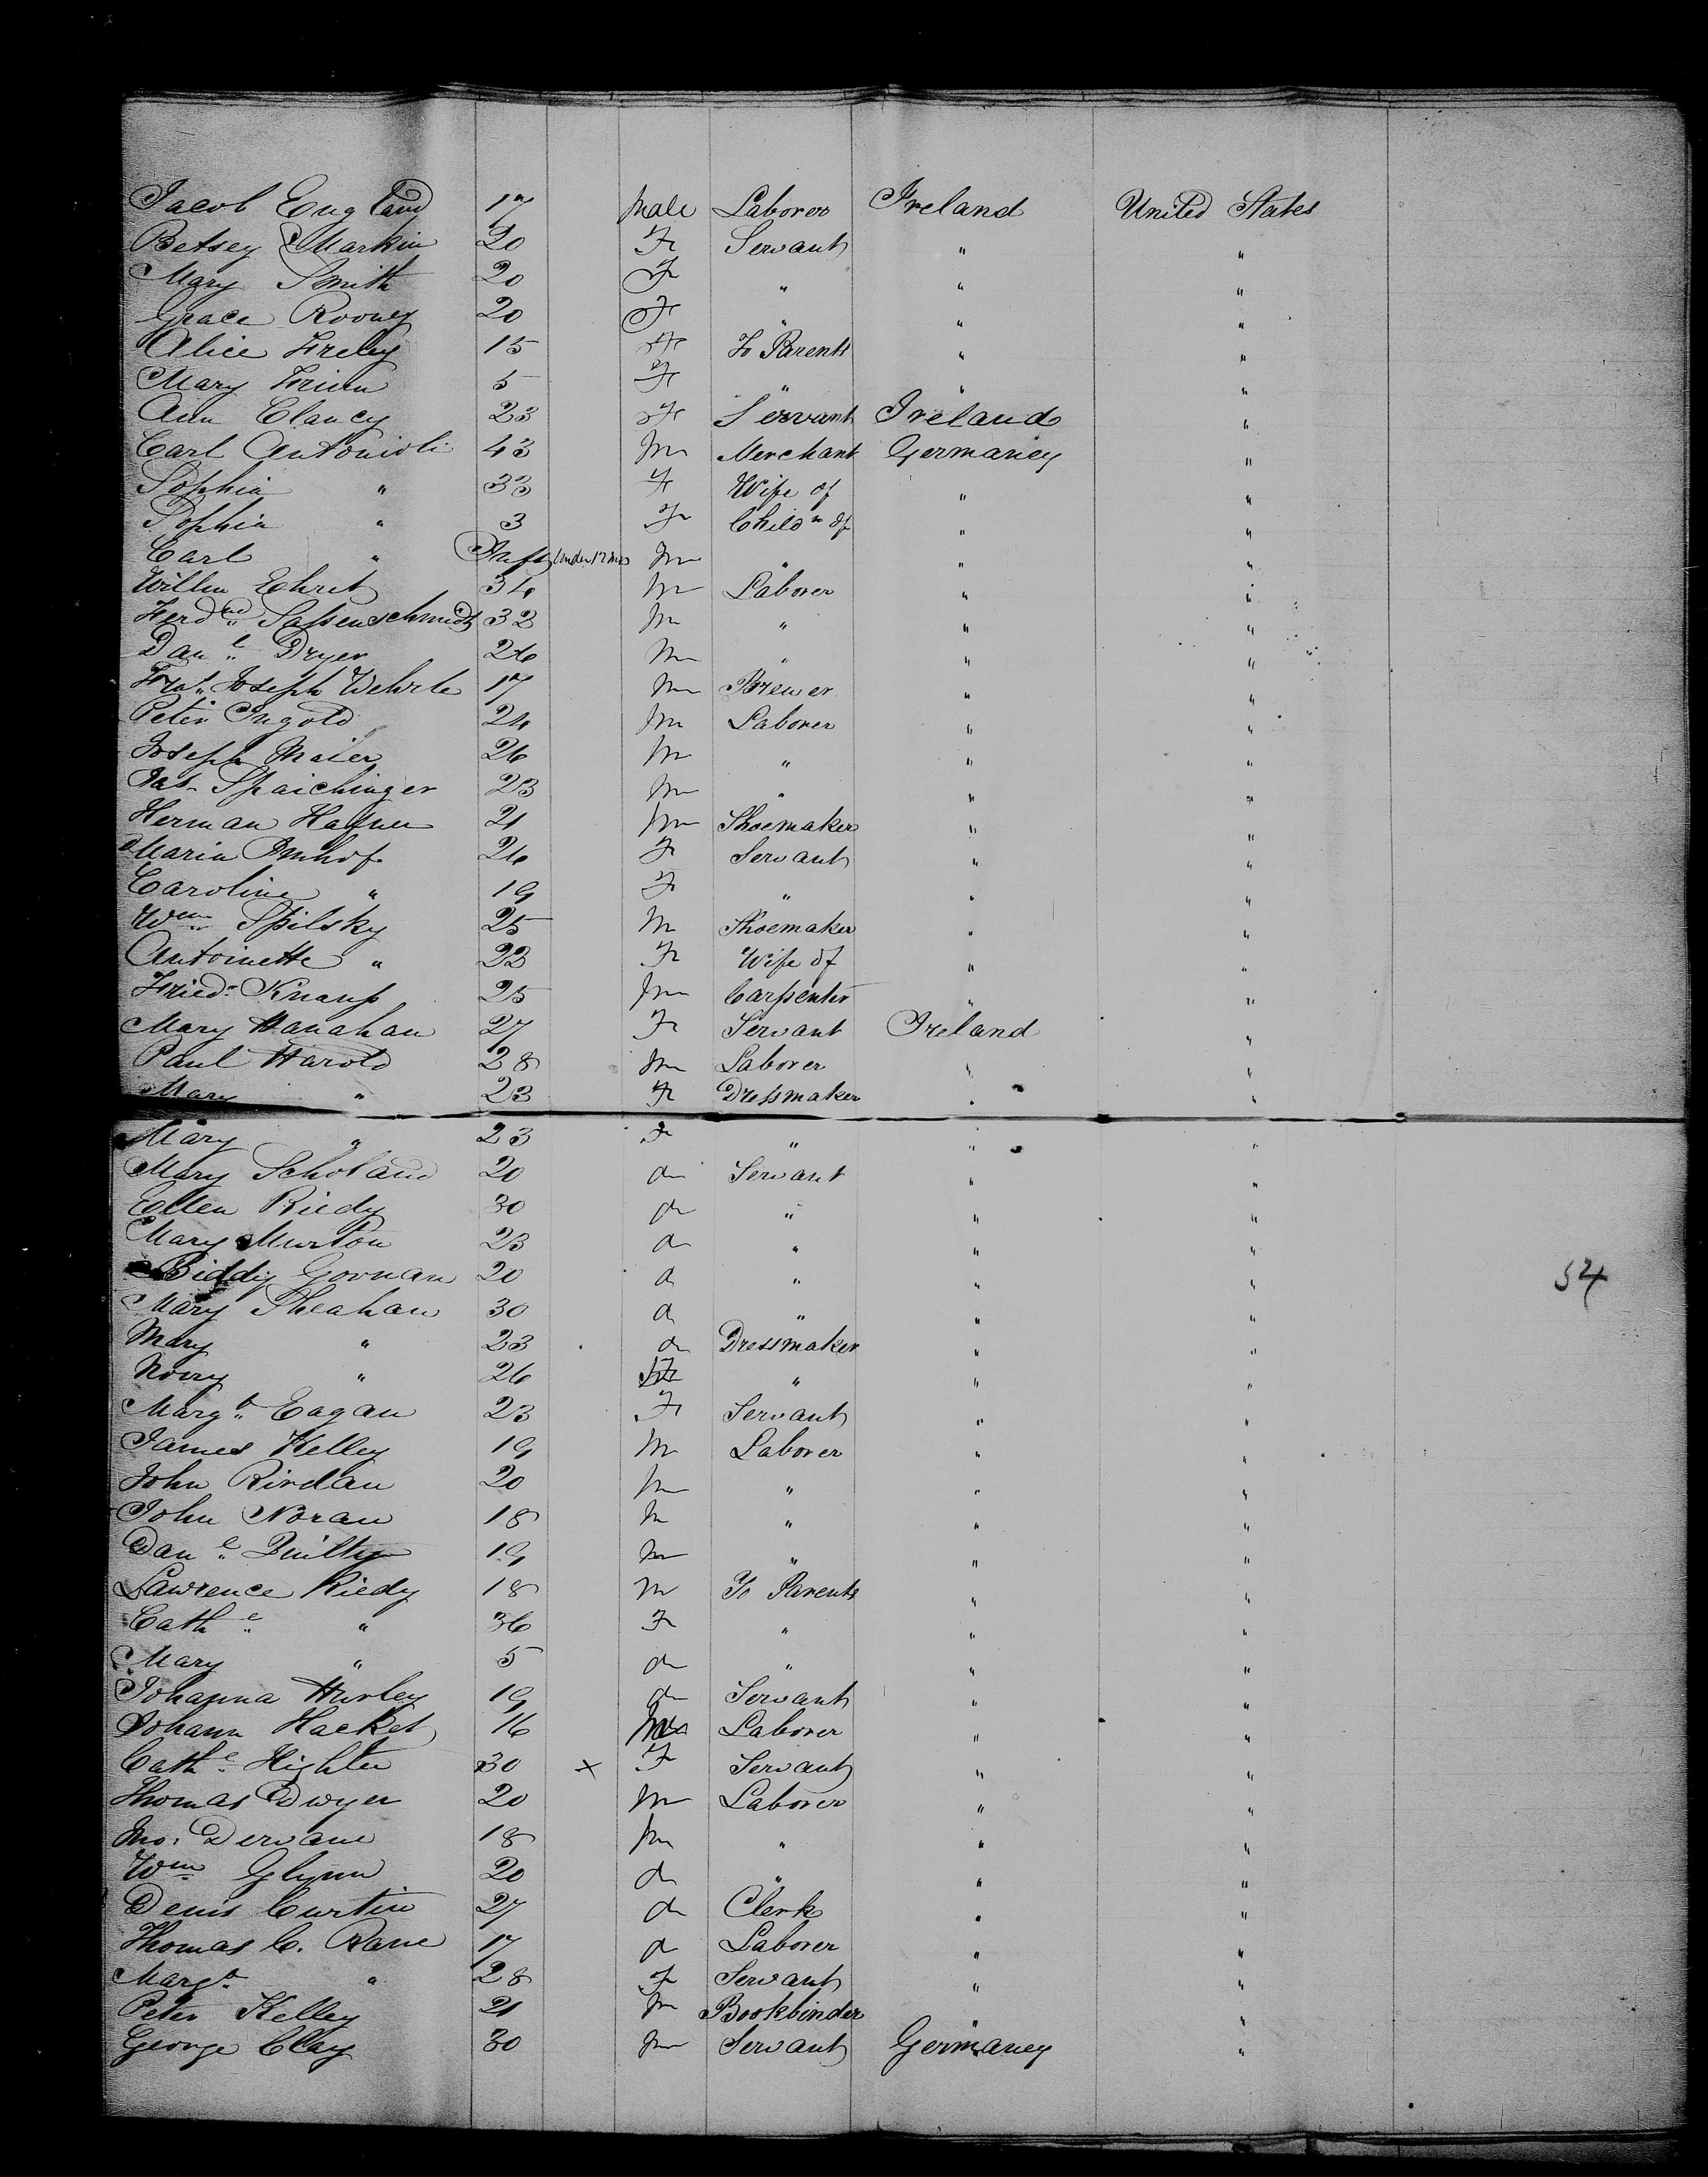 Jacob England 17 Male Laborer Ireland United States
Betsey Markin 20 F Servant " "
Mary Smith 20 F " " "
Grace Rooney 20 F " " "
Alice Freley 15 F To Parents " "
Mary 5 F " " "
Ann Clancy 23 F Servant Ireland "
Carl Antonioli 43 M Merchant Germaney "
Sophia " 33 F Wife of " "
Sophia " 3 F Child n of " "
Carl " Inft under 12 mos M " " "
Willm Ehret 34 M Laborer " "
Ferd nd Sassenschmidt 32 M " " "
Dan l Dryer 26 M " " "
Fra s Joseph Wehrle 17 M Brewer " "
Peter Ingold 24 M Laborer " "
Joseph Maier 26 M " " "
Jas. Spaichinger 23 M " " "
Herman Hafner 21 M Shoemaker " "
Maria Imhof 26 F Servant " "
Caroline " 19 F " " "
Wm Spilsky 25 M Shoemaker " "
Antoinette " 22 F Wife of " "
Fried. Knaup 25 M Carpenter " "
Mary Hanahan 27 F Servant Ireland "
Paul Harold 28 M Laborer " "
Mary " 23 F Dressmaker " "
Mary " 23 F " " "
Mary Scholand 20 do Servant " "
Ellen Riedy 30 do " " "
Mary Murton 23 do " " "
Biddy Goonan 20 do " " "
Mary Sheahan 30 do " " "
Mary " 23 do Dressmaker " "
Nory " 26 F " " "
Marg t Eagan 23 F Servant " "
James Kelley 19 M Laborer " "
John Rirdan 20 M " " "
John Noran 18 M " " "
Dan l Quilty 19 M " " "
Lawrence Riedy 18 M To Parents " "
Cath e " 36 F " " "
Mary " 5 do " " "
Johanna Hurley 19 do Servant " "
Johann Hacket 16 M Laborer " "
Cath e Highter 30 x F Servant " "
Thomas Dwyer 20 M Laborer " "
Jno. Dervane 18 M " " "
Wm Glynn 20 do " " "
Denis Curtin 27 do Clerk " "
Thomas C. Rane 17 do Laborer " "
Marg t " 28 F Servant " "
Peter Kelley 21 M Bookbinder " "
George Clay 30 M Servant Germaney "
54